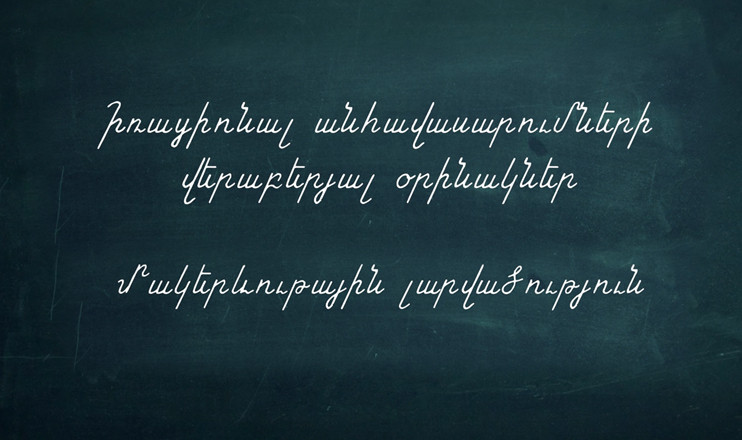 Իռացիոնալ անհավասարումների
վերաբերյալ օրինակներ
Մակերևութային լարվածություն